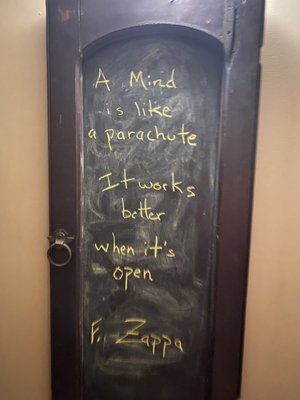 A Mind
is like
a parachute
It works
better
when it's
open
F. Zappa